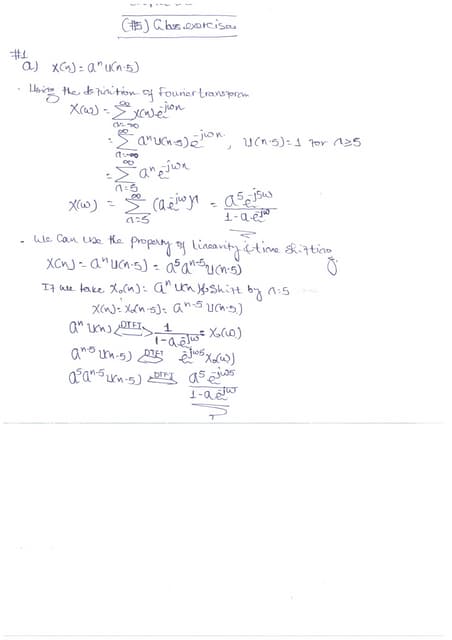 (#5) Class exercise
#1
a) x(n) = aⁿ u(n-5)
- Using the definition of Fourier transform
X(ω) = ∑_{n=-∞}^{∞} x(n) e^{-jωn}
= ∑_{n=-∞}^{∞} aⁿ u(n-5) e^{-jωn}, u(n-5) = 1 for n≥5
= ∑_{n=5}^{∞} aⁿ e^{-jωn}
X(ω) = ∑_{n=5}^{∞} (a e^{-jω})ⁿ = a⁵ e^{-j5ω} / (1 - a e^{-jω})
- We can use the property of linearity & time shifting
x(n) = aⁿ u(n-5) = a⁵ a^{n-5} u(n-5)
If we take x₀(n) = aⁿ u(n) & shift by n=5
x(n) = x₀(n-5) = a^{n-5} u(n-5)
aⁿ u(n) <DTFT> 1 / (1 - a e^{-jω}) = X₀(ω)
a^{n-5} u(n-5) <DTFT> e^{-jω5} X₀(ω)
a⁵ a^{n-5} u(n-5) <DTFT> a⁵ e^{-jω5} / (1 - a e^{-jω})